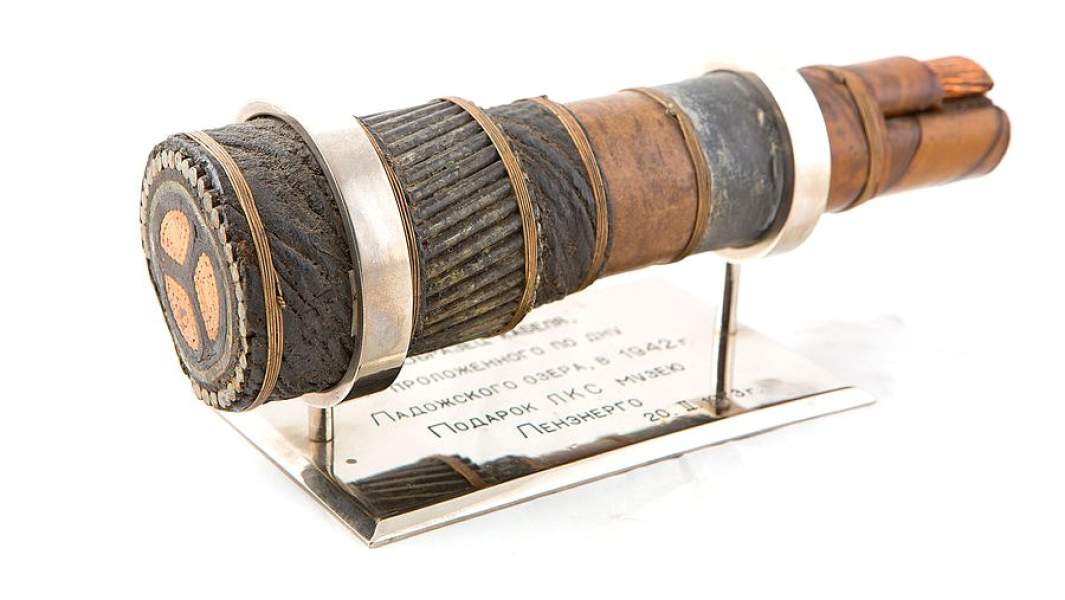 ОБРАЗЕЦ КАБЕЛЯ,
ПРОЛОЖЕННОГО ПО ДНУ
ЛАДОЖСКОГО ОЗЕРА, В 1942 г
ПОДАРОК ЛКС МУЗЕЮ
ЛЕНЭНЕРГО
20. II